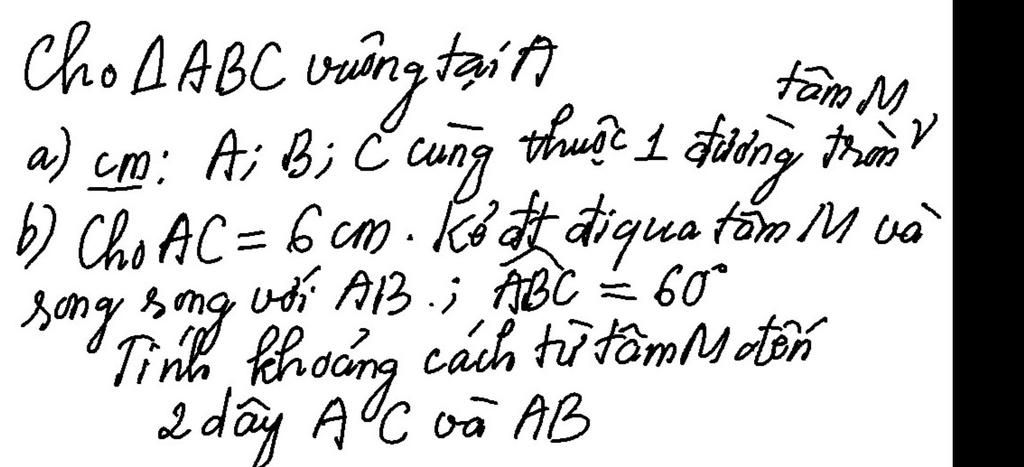 Cho Δ ABC vuông tại A
a) cm: A; B; C cùng thuộc 1 đường tròn tâm M
b) Cho AC = 6 cm. Kẻ đt đi qua tâm M và
song song với AB.; ABC = 60°
Tính khoảng cách từ tâm M đến
2 dây AC và AB